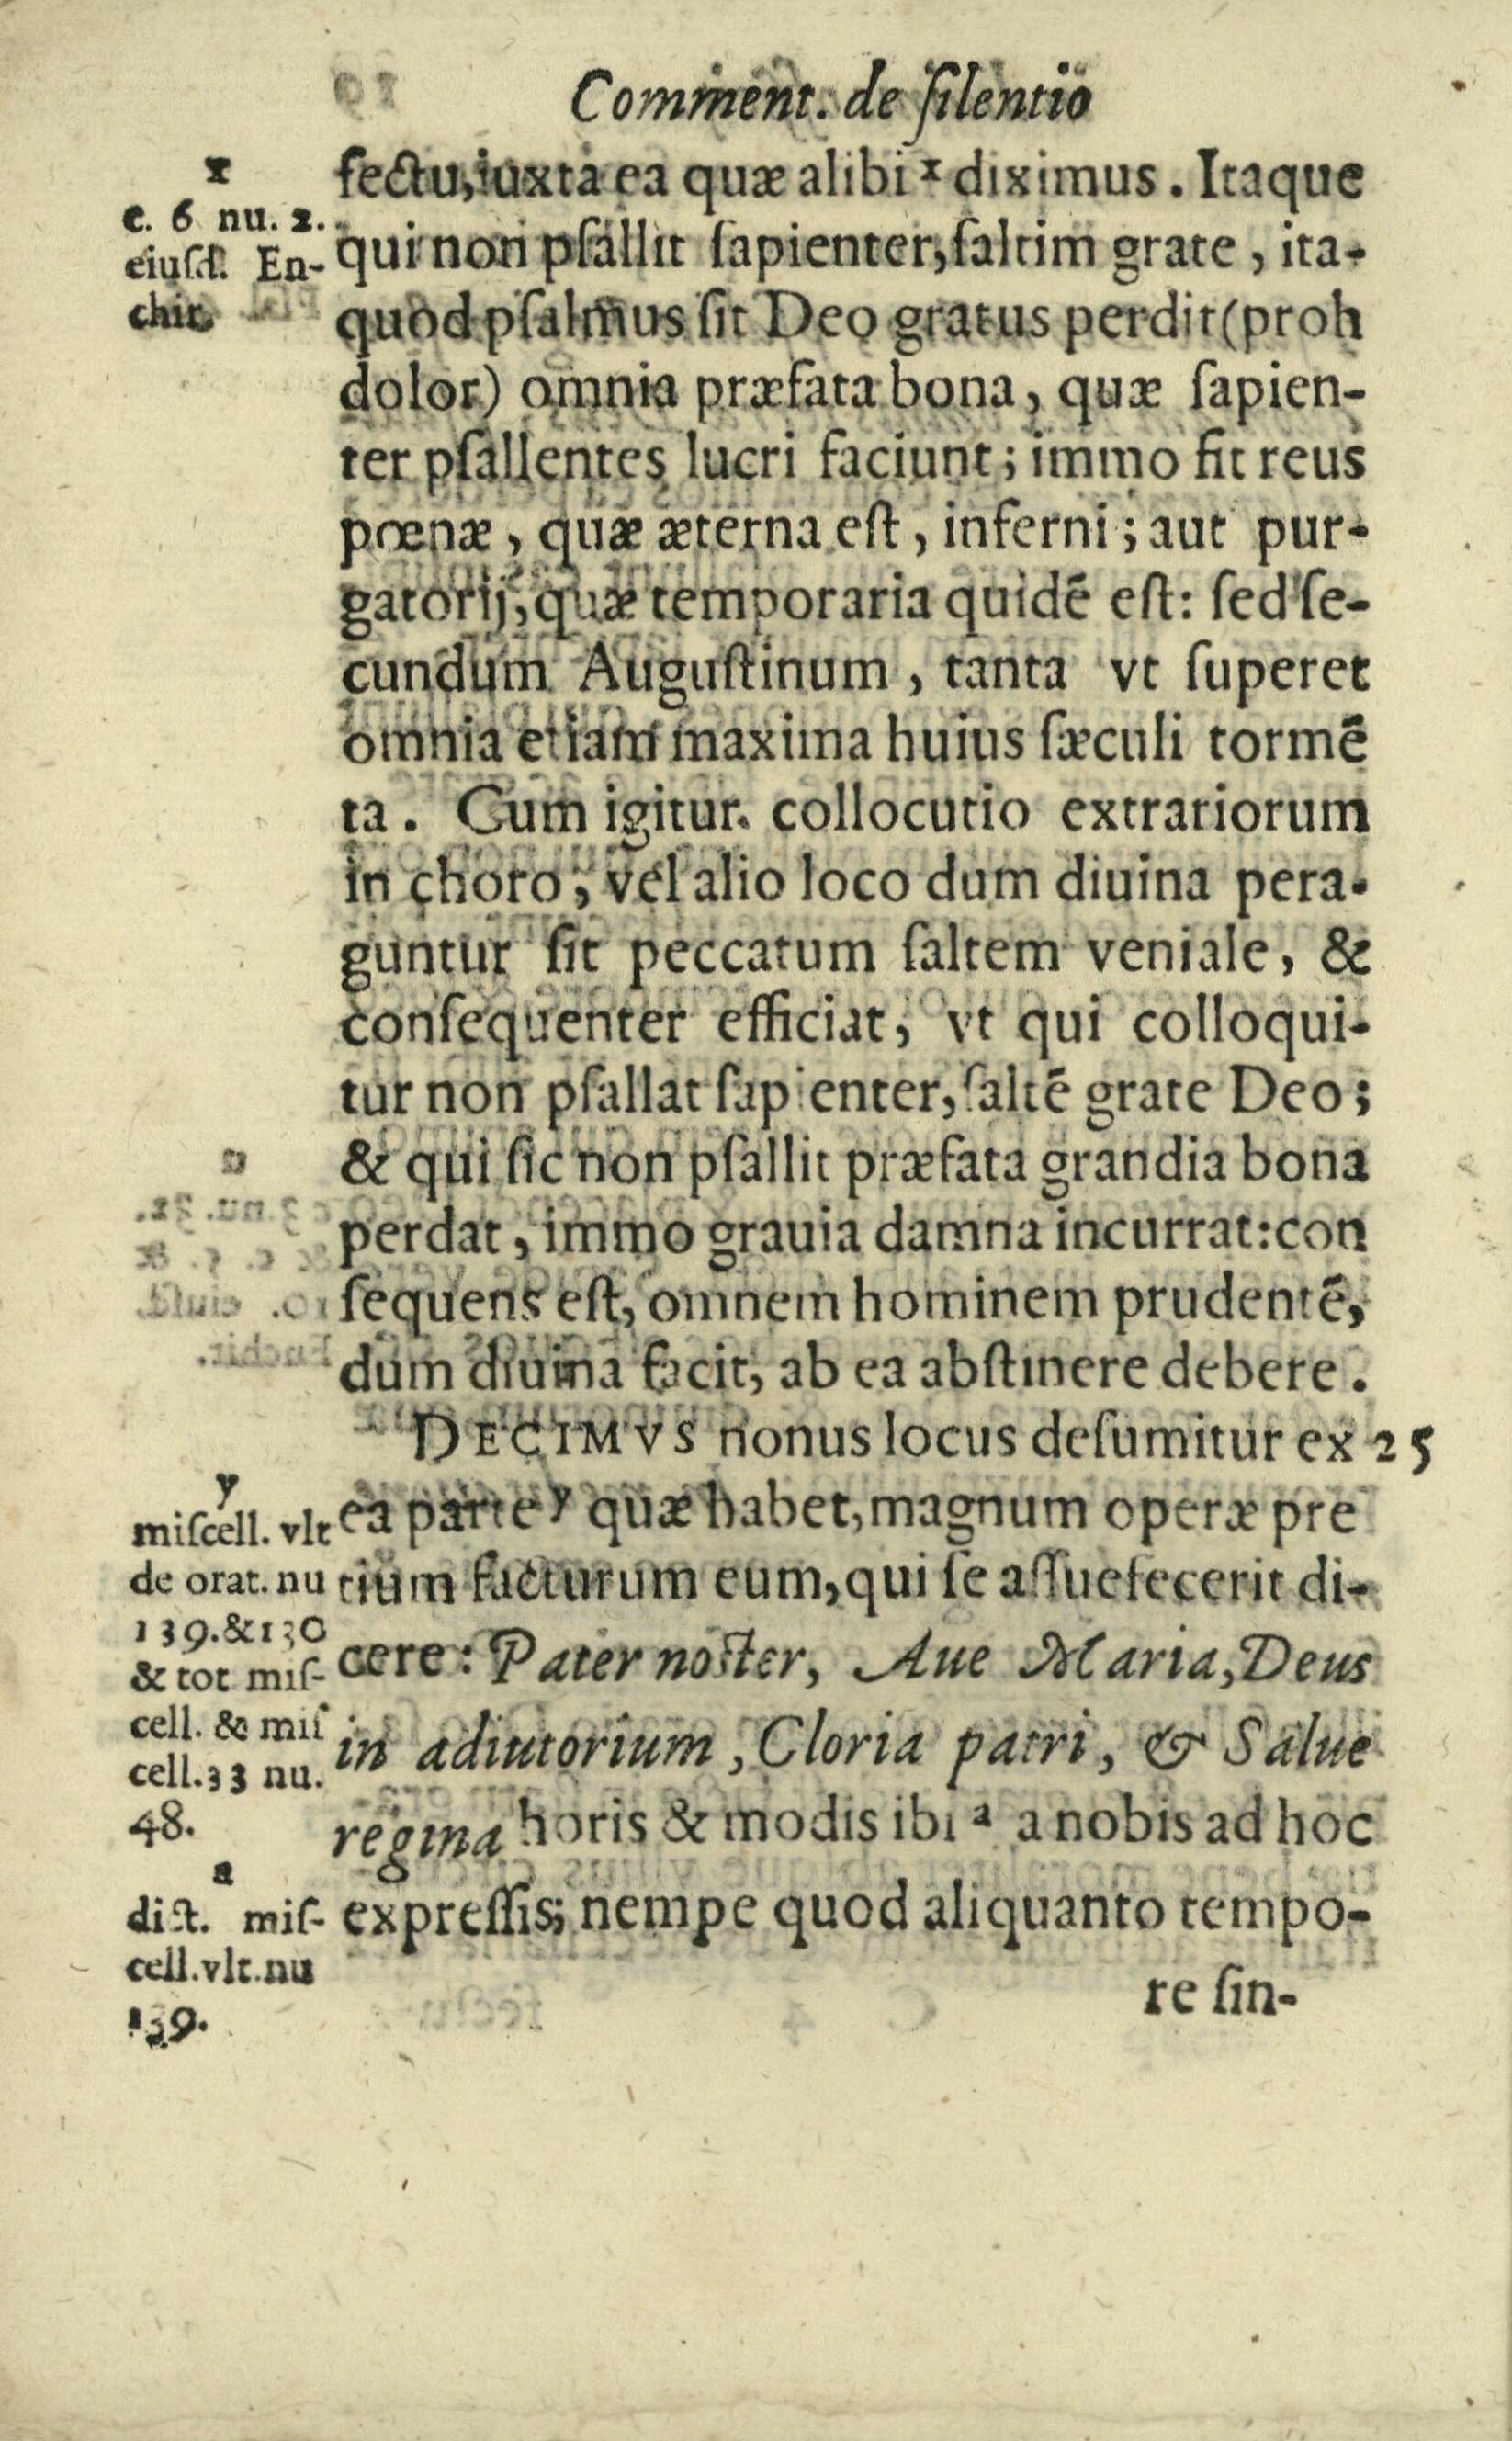 Comment. de ſilentio
fectu, iuxta ea quæ alibi x diximus. Itaque
qui non pſallit ſapienter, ſaltim grate, ita-
quod pſalmus ſit Deo gratus perdit (proh
dolor) omnia præfata bona, quæ ſapien-
ter pſallentes lucri faciunt; immo fit reus
pœnæ, quæ æterna eſt, inferni; aut pur-
gatorij, quæ temporaria quidẽ eſt: ſed ſe-
cundum Auguſtinum, tanta vt ſuperet
omnia etiam maxima huius ſæculi tormẽ
ta. Cum igitur. collocutio extrariorum
in choro, vel alio loco dum diuina pera-
guntur ſit peccatum ſaltem veniale, &
conſequenter efficiat, vt qui colloqui-
tur non pſallat ſapienter, ſaltẽ grate Deo;
& qui ſic non pſallit præfata grandia bona
perdat, immo grauia damna incurrat: con
ſequens eſt, omnem hominem prudentẽ,
dum diuina facit, ab ea abſtinere debere.
DECIMVS nonus locus deſumitur ex 25
ea parte y quæ habet, magnum operæ pre
tium facturum eum, qui ſe aſſuefecerit di-
cere: Pater noſter, Aue Maria, Deus
in adiutorium, Cloria patri, & Salue
regina horis & modis ibi a a nobis ad hoc
expreſſis; nempe quod aliquanto tempo-
re ſin-
x
c. 6 nu. 2.
eiuſd. En-
chir.
y
miſcell. vlt
de orat. nu
139. & 130
& tot miſ-
cell. & miſ
cell. 33 nu.
48.
a
dict. miſ-
cell. vlt. nu
139.